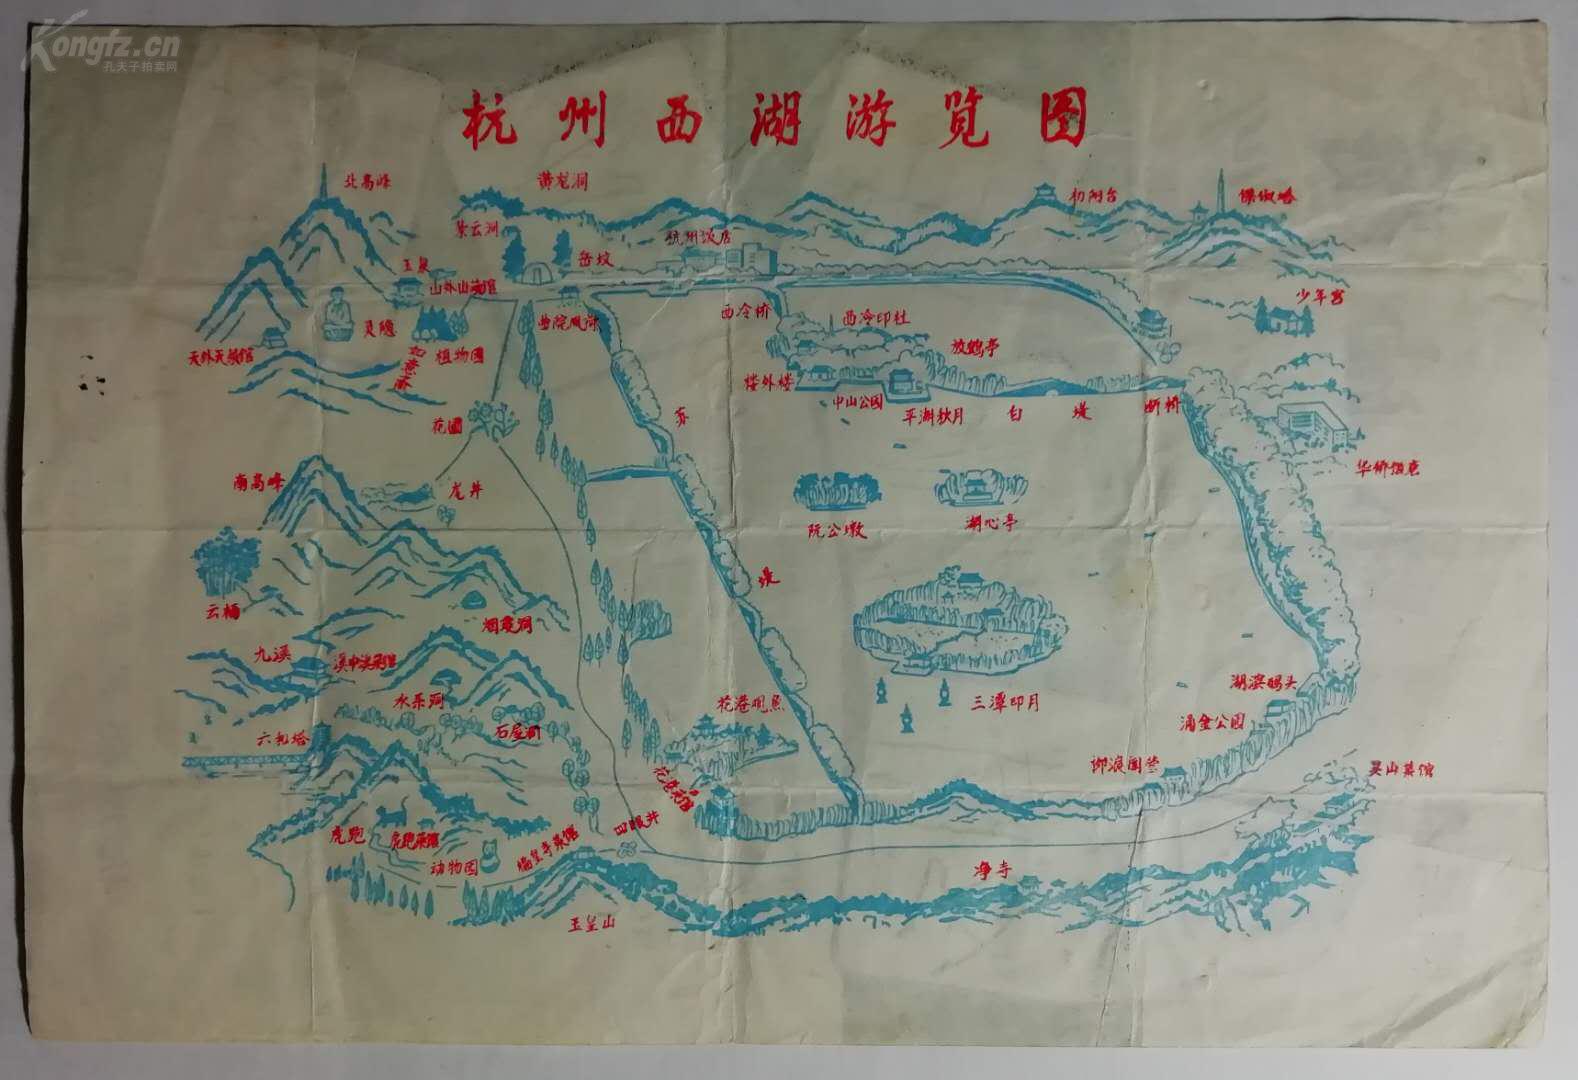 Kongfz.cn
孔夫子拍卖网
杭州西湖游览图
北高峰
黄龙洞
初阳台
保俶塔
紫云洞
杭州饭店
岳坟
玉泉
山外山菜馆
少年宫
灵隐
曲院风荷
西冷桥
西冷印社
放鹤亭
天外天菜馆
植物园
楼外楼
中山公园
平湖秋月
白堤
断桥
花圃
苏堤
华侨饭店
南高峰
龙井
阮公墩
湖心亭
云栖
烟霞洞
九溪
溪中溪菜馆
水乐洞
湖滨码头
花港观鱼
三潭印月
涌金公园
六和塔
石屋洞
柳浪闻莺
吴山菜馆
花港菜馆
虎跑
虎跑菜馆
四眼井
动物园
净寺
玉皇山